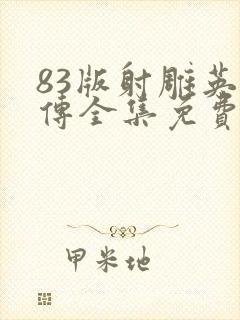 83版射雕英
傳全集免費
甲米地